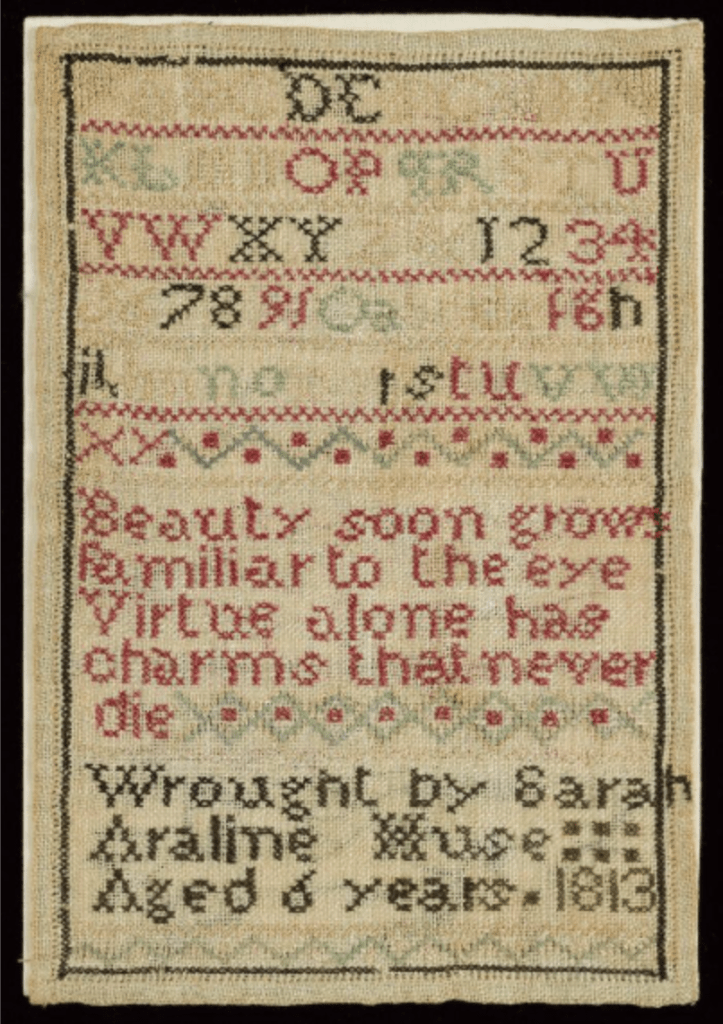 DE
KL OP QR STU
VWXY 1234
78910a fgh
ik no rstuvw
XY
Beauty soon grows
familiar to the eye
Virtue alone has
charms that never
die
Wrought by Sarah
Araline Huse
Aged 6 years. 1813